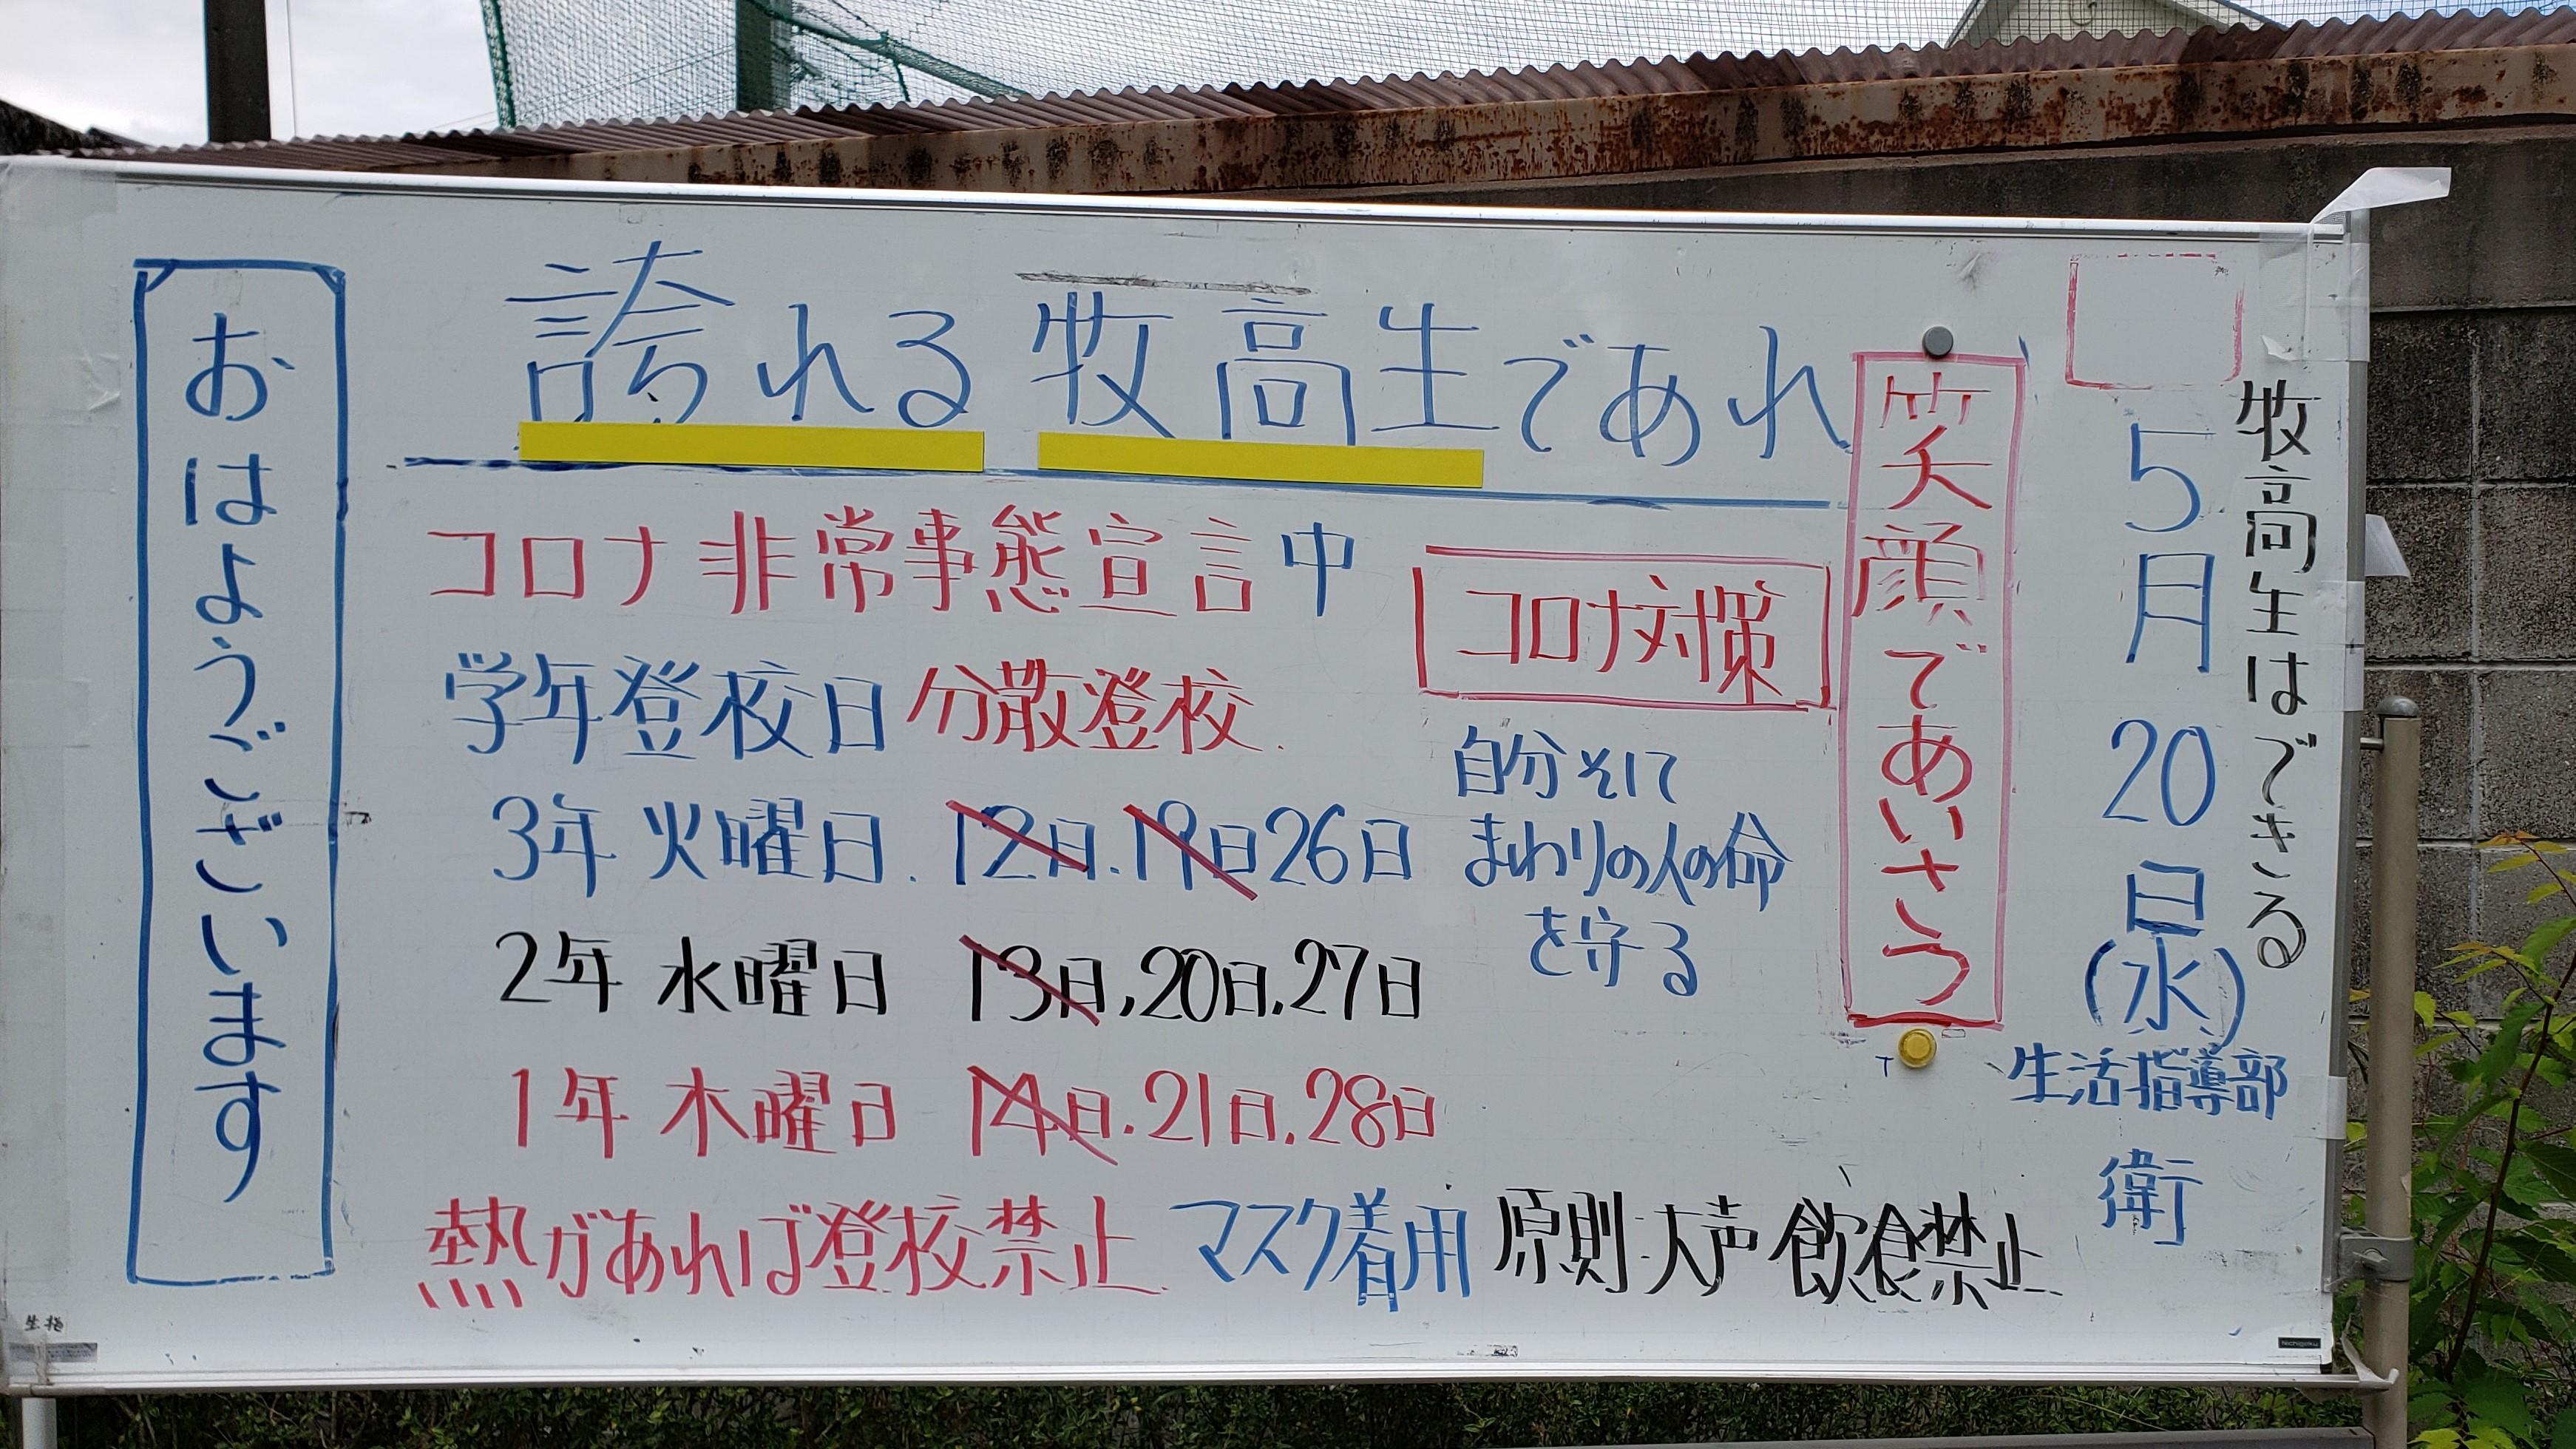 おはようございます
誇れる牧高生であれ
コロナ非常事態宣言中
学年登校日 分散登校.
3年 火曜日. 12日.19日26日
2年 水曜日 13日,20日.27日
1年 木曜日 14日.21日.28日
熱があれば登校禁止 マスク着用 原則 大声 飲食禁止
コロナ対策
自分そして
まわりの人の命
を守る
笑顔であいさつ
5月20日(水)
生活指導部
衛
牧高生はできる
生指